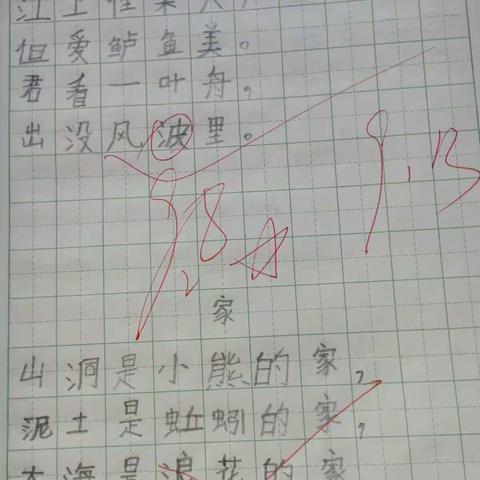 江上往来人，
但爱鲈鱼美。
君看一叶舟，
出没风波里。
9.13
98
家
山洞是小熊的家，
泥土是蚯蚓的家，
大海是浪花的家